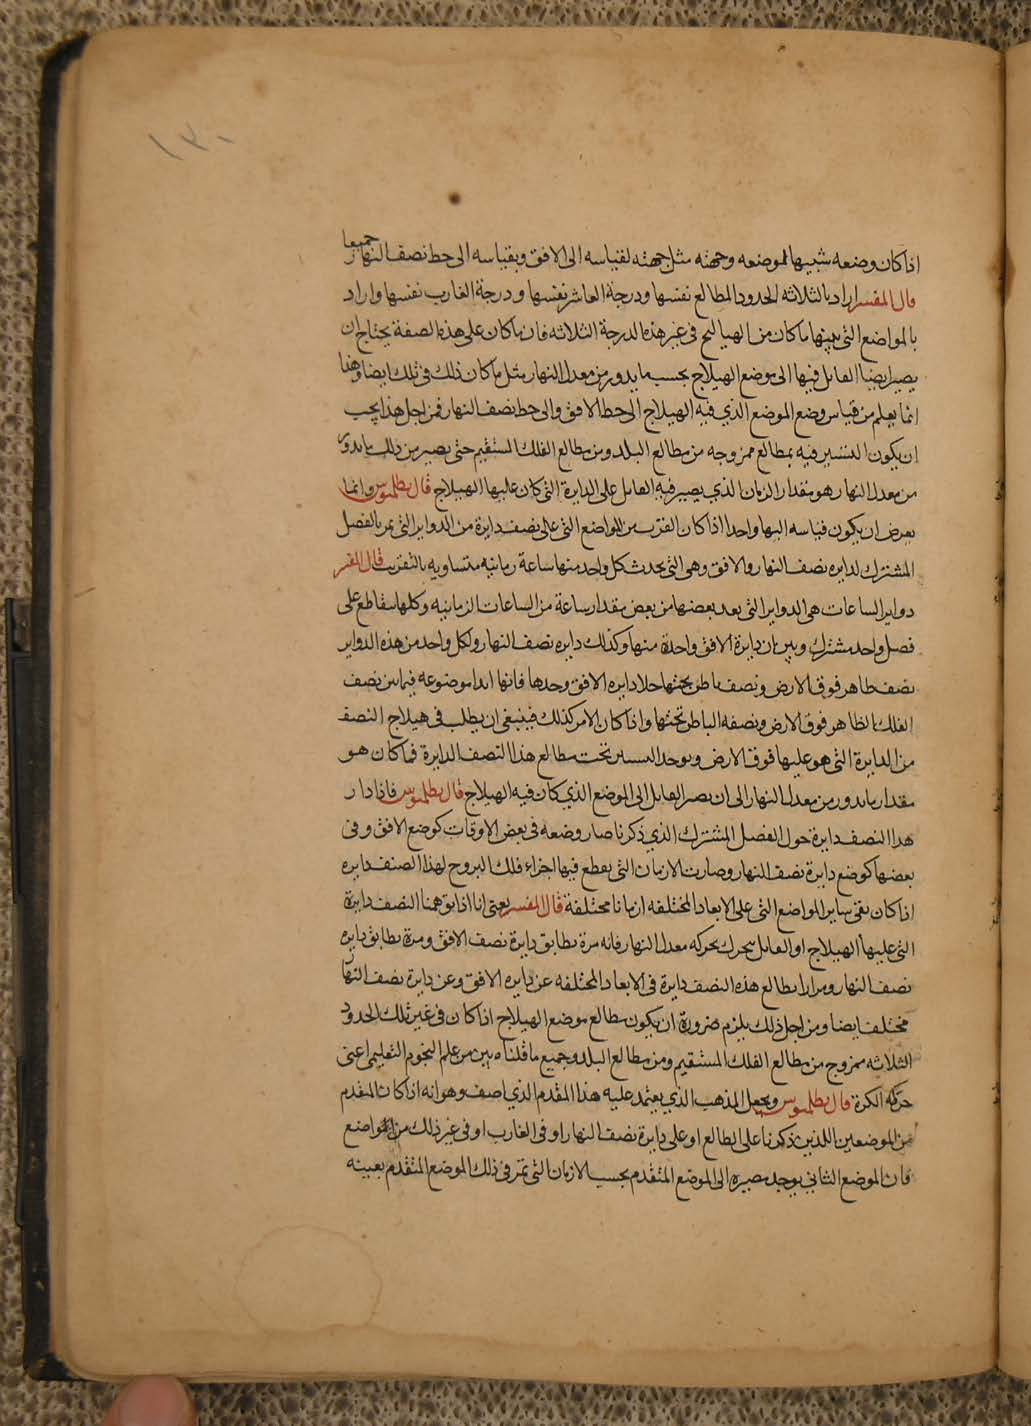 ١٣٠
اذا كان وضعه شبيها لموضعه وجهته مثل جهته لقياسه الى الافق وبقياسه الى خط نصف النهار جميعا
قال المفسر اراد بالثلاثه الحدود المطالع نفسها ودرجة العاشر نفسها ودرجة الغارب نفسها واراد
بالمواضع التى بينها ما كان من الهيالج فى غير هذه الدرجة الثلاثه فان ما كان على هذه الصفة يحتاج ان
يصير ايضا القابل فيها الى موضع الهيلاج بحسب ما يدور من معدل النهار مثل ما كان ذلك فى تلك ايضا وهذا
انما يعلم من قياس وضع الموضع الذي فيه الهيلاج الى خط الافق والى خط نصف النهار فمن اجل هذا يجب
ان يكون التسيير فيه بمطالع ممزوجه من مطالع البلد ومن مطالع الفلك المستقيم حتى يصير من ذلك ما يدور
من معدل النهار هو مقدار الزمان الذي يصير فيه القابل على الدايرة التى كان عليها الهيلاج قال بطلميوس وانما
يعرض ان يكون قياسه اليها واحدا اذا كان القرب من المواضع التى على نصف دايرة من الدواير التى تمر بالفصل
المشترك لدايره نصف النهار والافق وهى التى يحدث كل واحد منها ساعة زمانيه متساويه بالتقريب قال المفسر
دواير الساعات هى الدواير التى بعد بعضها من بعض مقدار ساعة من الساعات الزمانيه وكلها يتقاطع على
فصل واحد مشترك وبين ان دايرة الافق واحدة منها وكذلك دايره نصف النهار ولكل واحد من هذه الدواير
نصف ظاهر فوق الارض ونصف باطن تحتها خلا دايره الافق وحدها فانها ابدا موضوعه فيما بين نصف
الفلك الظاهر فوق الارض ونصفه الباطن تحتها واذا كان الامر كذلك فينبغى ان يطلب فى هيلاج النصف
من الدايرة التى هو عليها فوق الارض ويوخذ التسيير تحت مطالع هذا النصف الدايرة فما كان هو
مقدار ما يدور من معدل النهار الى ان يصير القابل الى الموضع الذي كان فيه الهيلاج قال بطلميوس فاذا دار
هذا النصف دايرة حول الفصل المشترك الذي ذكرنا صار وضعه فى بعض الاوقات كوضع الافق وفى
بعضها كوضع دايرة نصف النهار وصارت الازمان التى يقطع فيها اجزاء فلك البروج لهذا الصنف دايره
اذا كان بقى ساير المواضع التى على الابعاد المختلفه ازمانا مختلفة قال المفسر يعنى انا اذا توهمنا النصف دايرة
التى عليها الهيلاج او القابل يتحرك بحركه معدل النهار فانه مرة يطابق دايرة نصف الافق ومرة يطابق دايره
نصف النهار ومرارا بطالع هذه النصف دايرة فى الابعاد المختلفه عن دايره الافق وعن دايرة نصف النهار
مختلف ايضا ومن اجل ذلك يلزم ضرورة ان يكون مطالع موضع الهيلاج اذا كان فى غير تلك الحدود
الثلاثه ممزوج من مطالع الفلك المستقيم ومن مطالع البلد وجميع ما قلناه بين من علم النجوم التعليمى اعنى
حركه الكرة قال بطلميوس ويجعل المذهب الذي يعتمد عليه هذا المقدم الذي اصف وهو انه اذا كان المقدم
من الموضعين اللذين ذكرنا على الطالع او على دايرة نصف النهار او فى الغارب او فى غير ذلك من المواضع
فان الموضع الثانى يوجد مصيره الى الموضع المتقدم بحسب الازمان التى تمر فى ذلك الموضع المتقدم بعينه